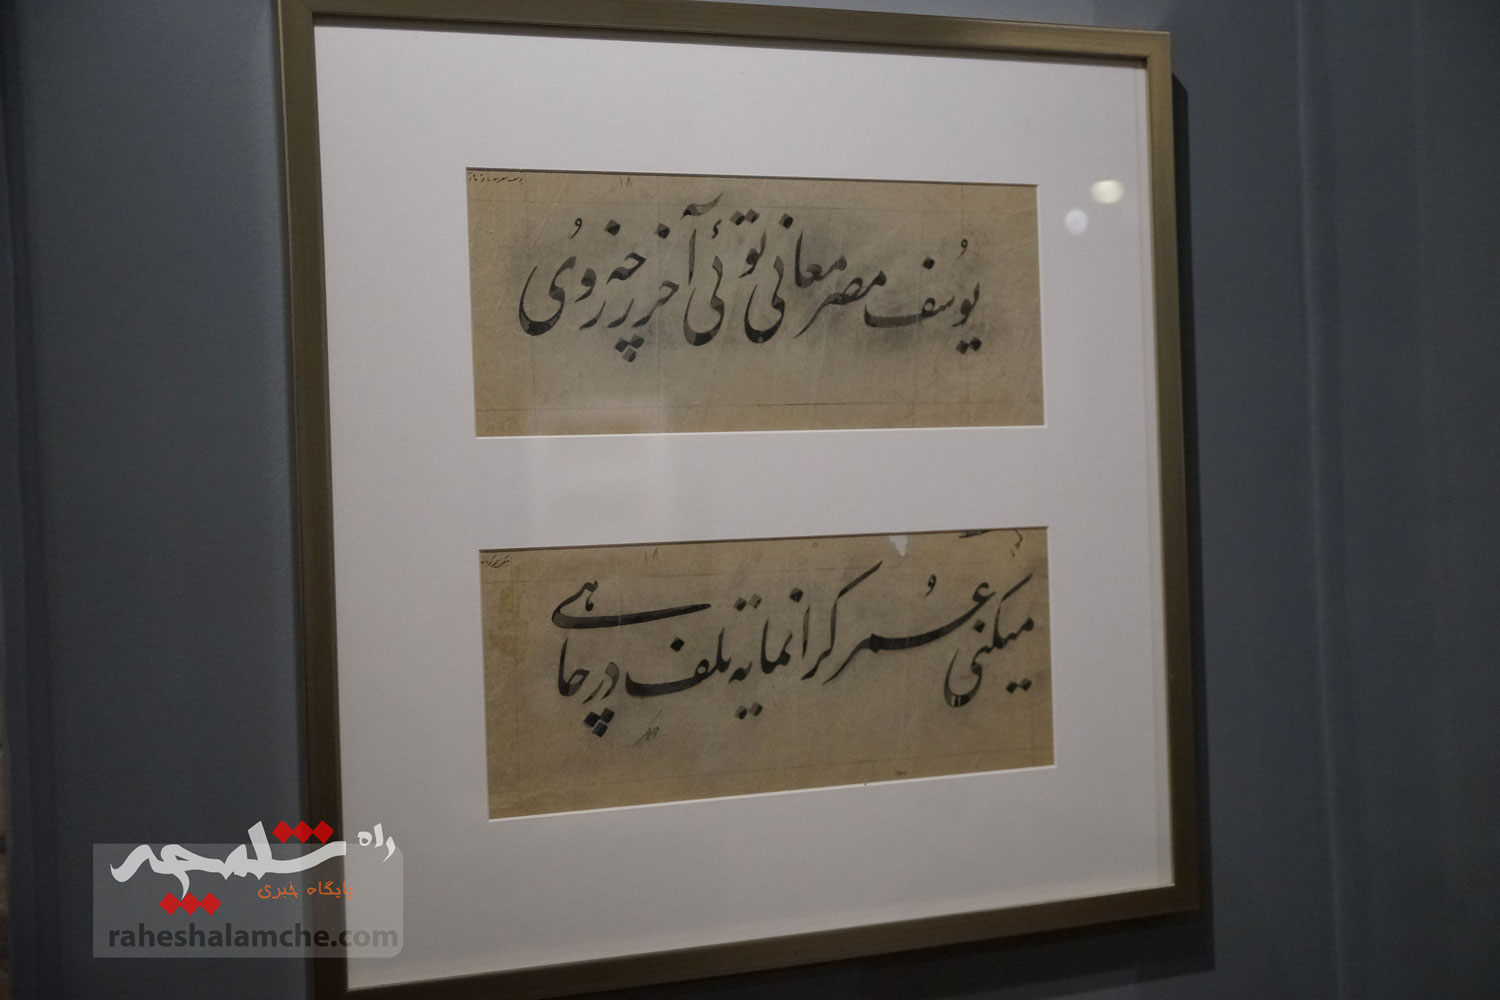 ۱۸
یوسف مصر معانی توئی آخر ز چه روی
۱۸
میکنی عمر گرانمایه تلف در چاهی
راه شلمچه
پایگاه خبری
raheshalamche.com